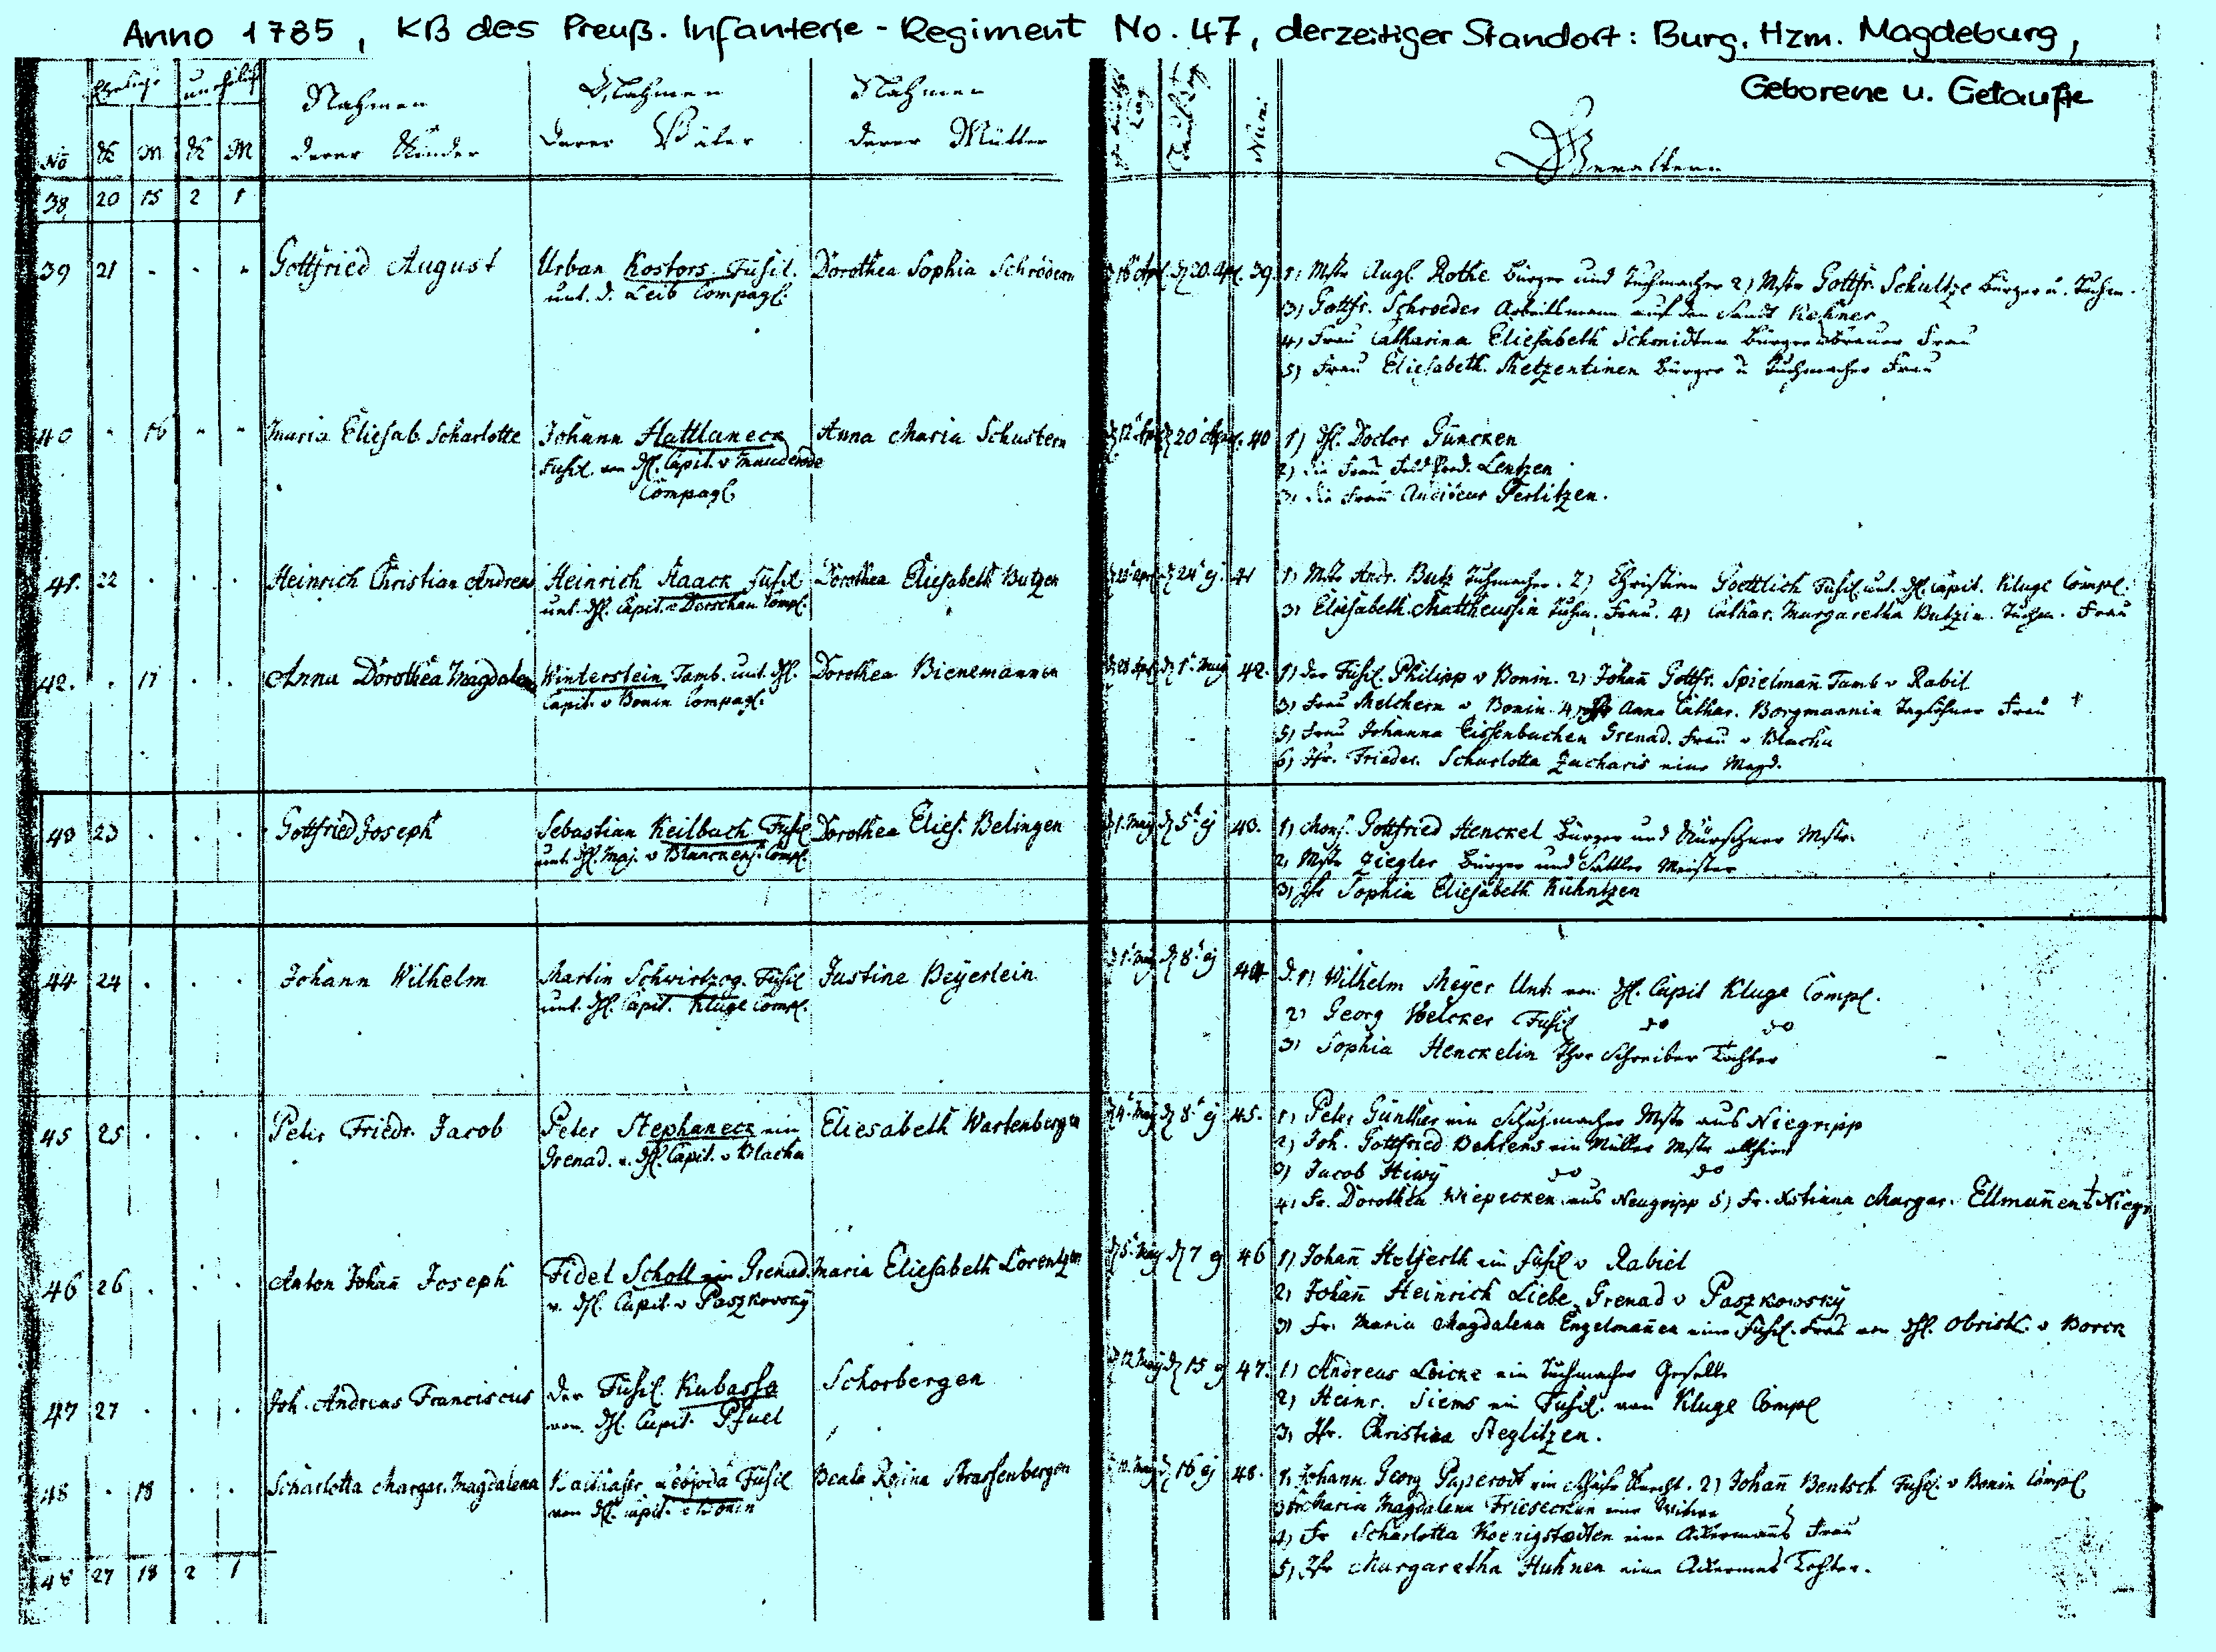 Anno 1785, KB des Preuß. Infanterie-Regiment No. 47, derzeitiger Standort: Burg, Hzm. Magdeburg,
Geborene u. Getaufte
Eheliche unehlich
Nahmen Nahmen Nahmen
No K M K M derer Kinder derer Väter derer Mütter Num: Gevattern
38 20 15 2 1
39 21 - - - Gottfried August Urban Kostors Fusil. Dorothea Sophia Schrödern d 16 Apl. d 20. Apl. 39. 1) Mstr Augl Rothe Bürger und Tuchmacher 2) Mstr Gottfr. Schultze Bürger u. Tuchm.
unt. d. Leib Compagl. 3) Gottfr. Schroeder Arbeitsmann auf den
4) Frau Catharina Eliesabeth Schmidten Bürger Frau
5) Frau Eliesabeth. Metzentinen Bürger u Tuchmacher Frau
40 - 16 - - Maria Eliesab. Scharlotte Johann Hattlaneck Anna Maria Schustern 20 Apl. 40 1) Doctor Güncken
Fusil. von H. Capit. v 2) die Frau Feld Pred. Lentzen
Compagl. 3) die Frau Auditeur Perlitzen.
41. 22 . . . Heinrich Christian Andreas Heinrich Haack Fusil Dorothea Eliesabeth Butzen d 24 ej. 41 1) Mstr Andr. Butz Tuchmacher. 2) Christian Goettlich Fusil. unt. H. Capit. Kluge Compl.
unt. H. Capit. v Dorschau Compl. 3) Eliesabeth Mattheussin Tuchm. Frau. 4) Cathar. Margaretha Butzin Tuchm. Frau
42. . 17 . . Anna Dorothea Magdalena Winterstein Tamb. unt. H. Dorothea Bienemannen d 1 May 42. 1) der Fusil. Philipp v Bonin. 2) Johan̄ Gottfr. Spielman̄ Tamb v Rabil
Capit. v Bonin Compagl. 3) Frau Melchern v Bonin 4) Anna Cathar. Borgmannin Taglöhner Frau
5) Frau Johanna Eissenbachen Grenad. Frau v Blacha
6) Jfr. Frieder. Scharlotta Zacharis eine Magd.
43 23 . . . Gottfried Joseph Sebastian Keilbach Fusil Dorothea Elies. Belingen d 1. May d 5 ej 43. 1) Mons. Gottfried Henckel Bürger und Kürschner Mstr.
unt. H. Maj. v Blanckens. Compl. 2) Mstr Ziegler Bürger und Sattler Meister
3) Jfr Sophia Eliesabeth Kuhntzen
44 24 . . . Johann Wilhelm Martin Schwirtzog. Fusil Justine Beyerlein d 1. May d 8 ej 44 1) Wilhelm Meyer Unt. von H. Capit Kluge Compl.
unt. H. Capit. Kluge Compl. 2) Georg Voelcker Fusil do do
3) Sophia Henckelin Thor Schreiber Tochter
45 25 . . . Peter Friedr. Jacob Peter Stephaneck ein Eliesabeth Wartenbergen d 4. May d 8 ej 45. 1) Peter Günther ein Schuhmacher Mstr aus Niegripp
Grenad. v. H. Capit. v Blacha 2) Joh. Gottfried Behrens ein Müller Mstr allhier
3) Jacob Hiwy do do
4) Fr. Dorothea Wiepecken aus Neugripp 5) Fr. Xstiana Margar. Ellman̄en Niegr
46 26 . . . Anton Johan̄ Joseph Fidel Scholl ein Grenad. Maria Eliesabeth Lorentzen d 5. May d 7 ej 46 1) Johan̄ Helferth ein Fusil v Rabiel
v. H. Capit. v Paszkowsky 2) Johan̄ Heinrich Liebe Grenad v Paszkowsky
3) Fr. Maria Magdalena Engelman̄en eine Fusil. Frau von H. Obrist. v Borck
47 27 . . . Joh. Andreas Franciscus der Fusil. Kubassa Schorbergen d 12 May d 15 ej 47. 1) Andreas Loicke ein Tuchmacher Gesell
von H. Capit. Pfuel 2) Heinr. Siems ein Fusil. von Kluge Compl
3) Jfr. Christina Steglitzen.
48 . 18 . . Scharlotta Margar. Magdalena Fusil Beata Rosina Strassenbergen d 16 ej 48. 1) Johann Georg Paperodt ein 2) Johan̄ Bentsch Fusil. v Bonin Compl
von H. Capit. v Bonin 3) Fr Maria Magdalena Friesecken eine Witwe
4) Fr Scharlotta Koenigstedten eine Ackermanns Frau
48 27 18 2 1 5) Jfr Margaretha Huhnen eine Ackermans Tochter.